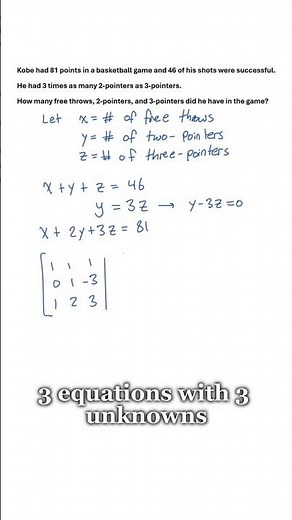 Kobe had 81 points in a basketball game and 46 of his shots were successful.
He had 3 times as many 2-pointers as 3-pointers.
How many free throws, 2-pointers, and 3-pointers did he have in the game?
Let x = # of free thows
y = # of two-pointers
z = # of three-pointers
x + y + z = 46
y = 3z → y-3z=0
x + 2y + 3z = 81
1 1 1
0 1 -3
1 2 3
3 equations with 3
unknowns